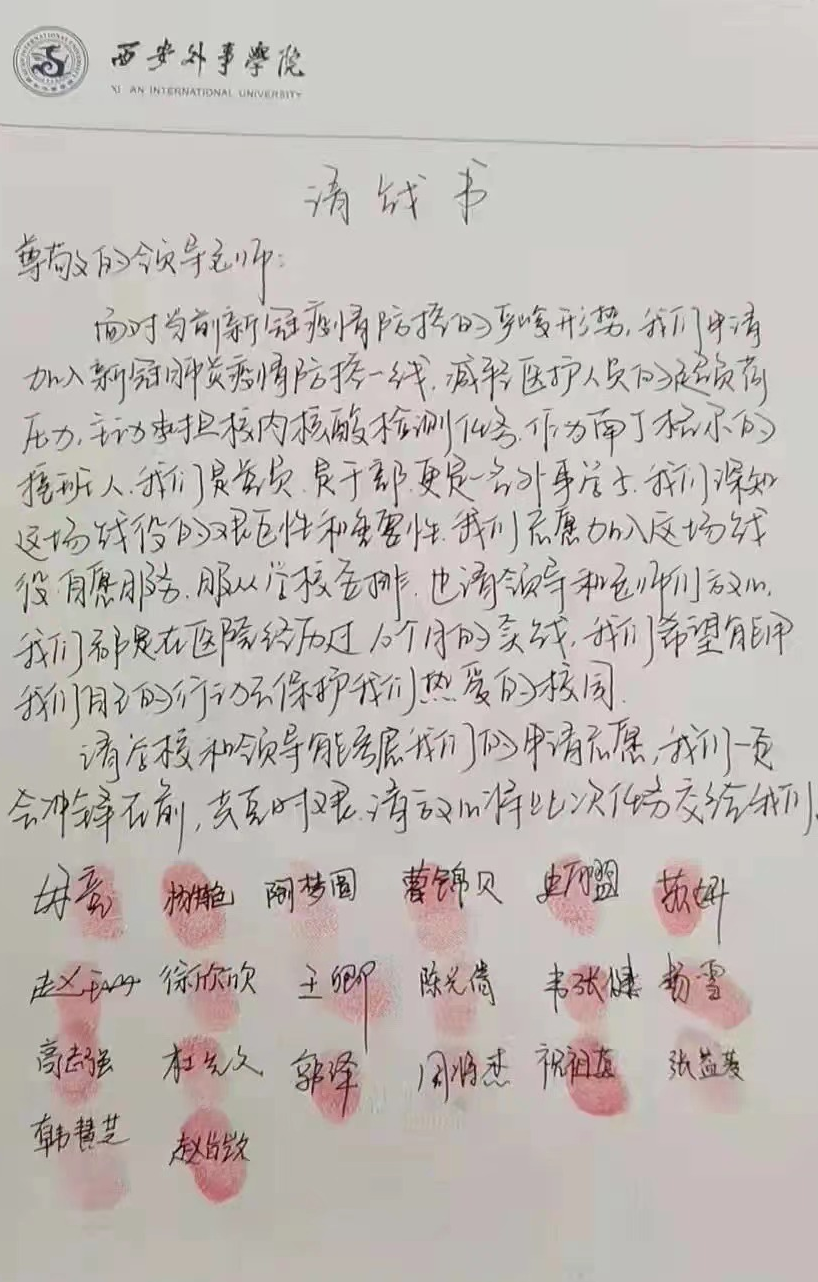 西安外事学院
XI'AN INTERNATIONAL UNIVERSITY
请战书
尊敬的领导老师:
面对当前新冠疫情防控的严峻形势,我们申请
加入新冠肺炎疫情防控一线,减轻医护人员的超负荷
压力,主动承担校内核酸检测任务.作为南丁格尔的
接班人.我们是党员.是干部.更是一名外事学子.我们深知
这场战役的艰巨性和重要性.我们志愿加入这场战
役.自愿服务.服从学校安排.也请领导和老师们放心.
我们都是在医院经历过10个月的实战,我们希望能用
我们自己的行动去保护我们热爱的校园.
请学校和领导能考虑我们的申请志愿,我们一定
会冲锋在前,共克时艰.请放心将此次任务交给我们.
杨艳 阚梦圆 曹锦贝 史阿盟 苏妍
徐欣欣 王卿 韦张健 杨雪
高志强 杜允文 郭泽 周将杰 张益菱
韩慧芝